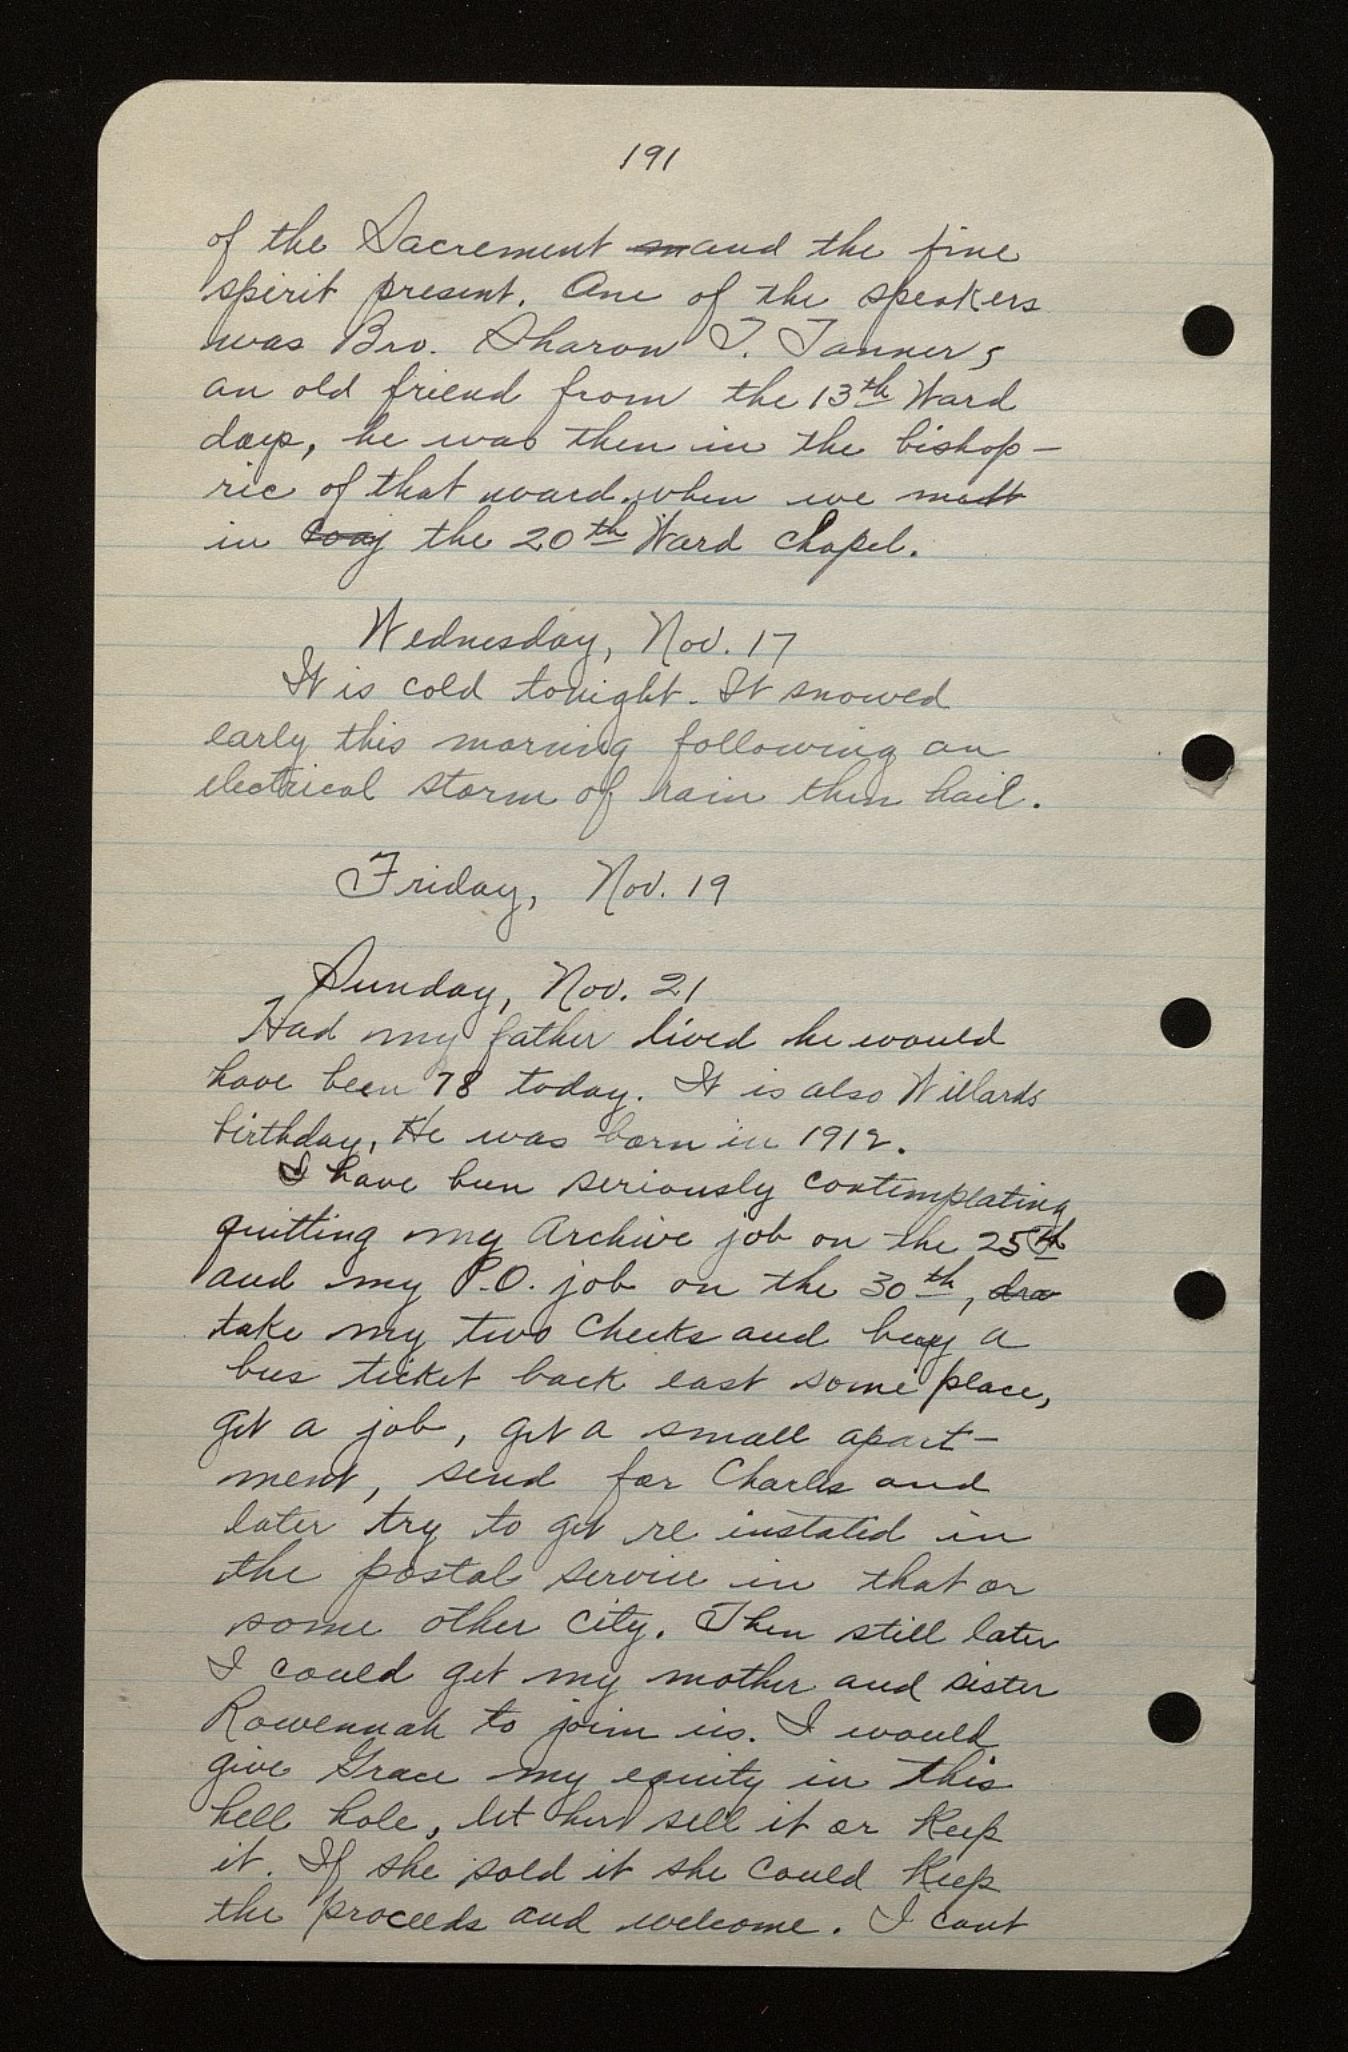 191
of the Sacrement and the fine
spirit present. One of the speakers
was Bro. Sharon T. Tanner,
an old friend from the 13th Ward
days, he was then in the bishop-
ric of that ward when we met
in the 20th Ward Chapel.
Wednesday, Nov. 17
It is cold tonight. It snowed
early this morning following an
electrical storm of rain then hail.
Friday, Nov. 19
Sunday, Nov. 21
Had my father lived he would
have been 78 today. It is also Willards
birthday, He was born in 1912.
I have been seriously contemplating
quitting my Archive job on the 25th
and my P.O. job on the 30th,
take my two checks and buy a
bus ticket back east some place,
get a job, get a small apart-
ment, send for Charles and
later try to get re instated in
the postal service in that or
some other city. Then still later
I could get my mother and sister
Rowennah to join us. I would
give Grace my equity in this
hell hole, let her sell it or keep
it. If she sold it she could keep
the proceeds and welcome. I cant